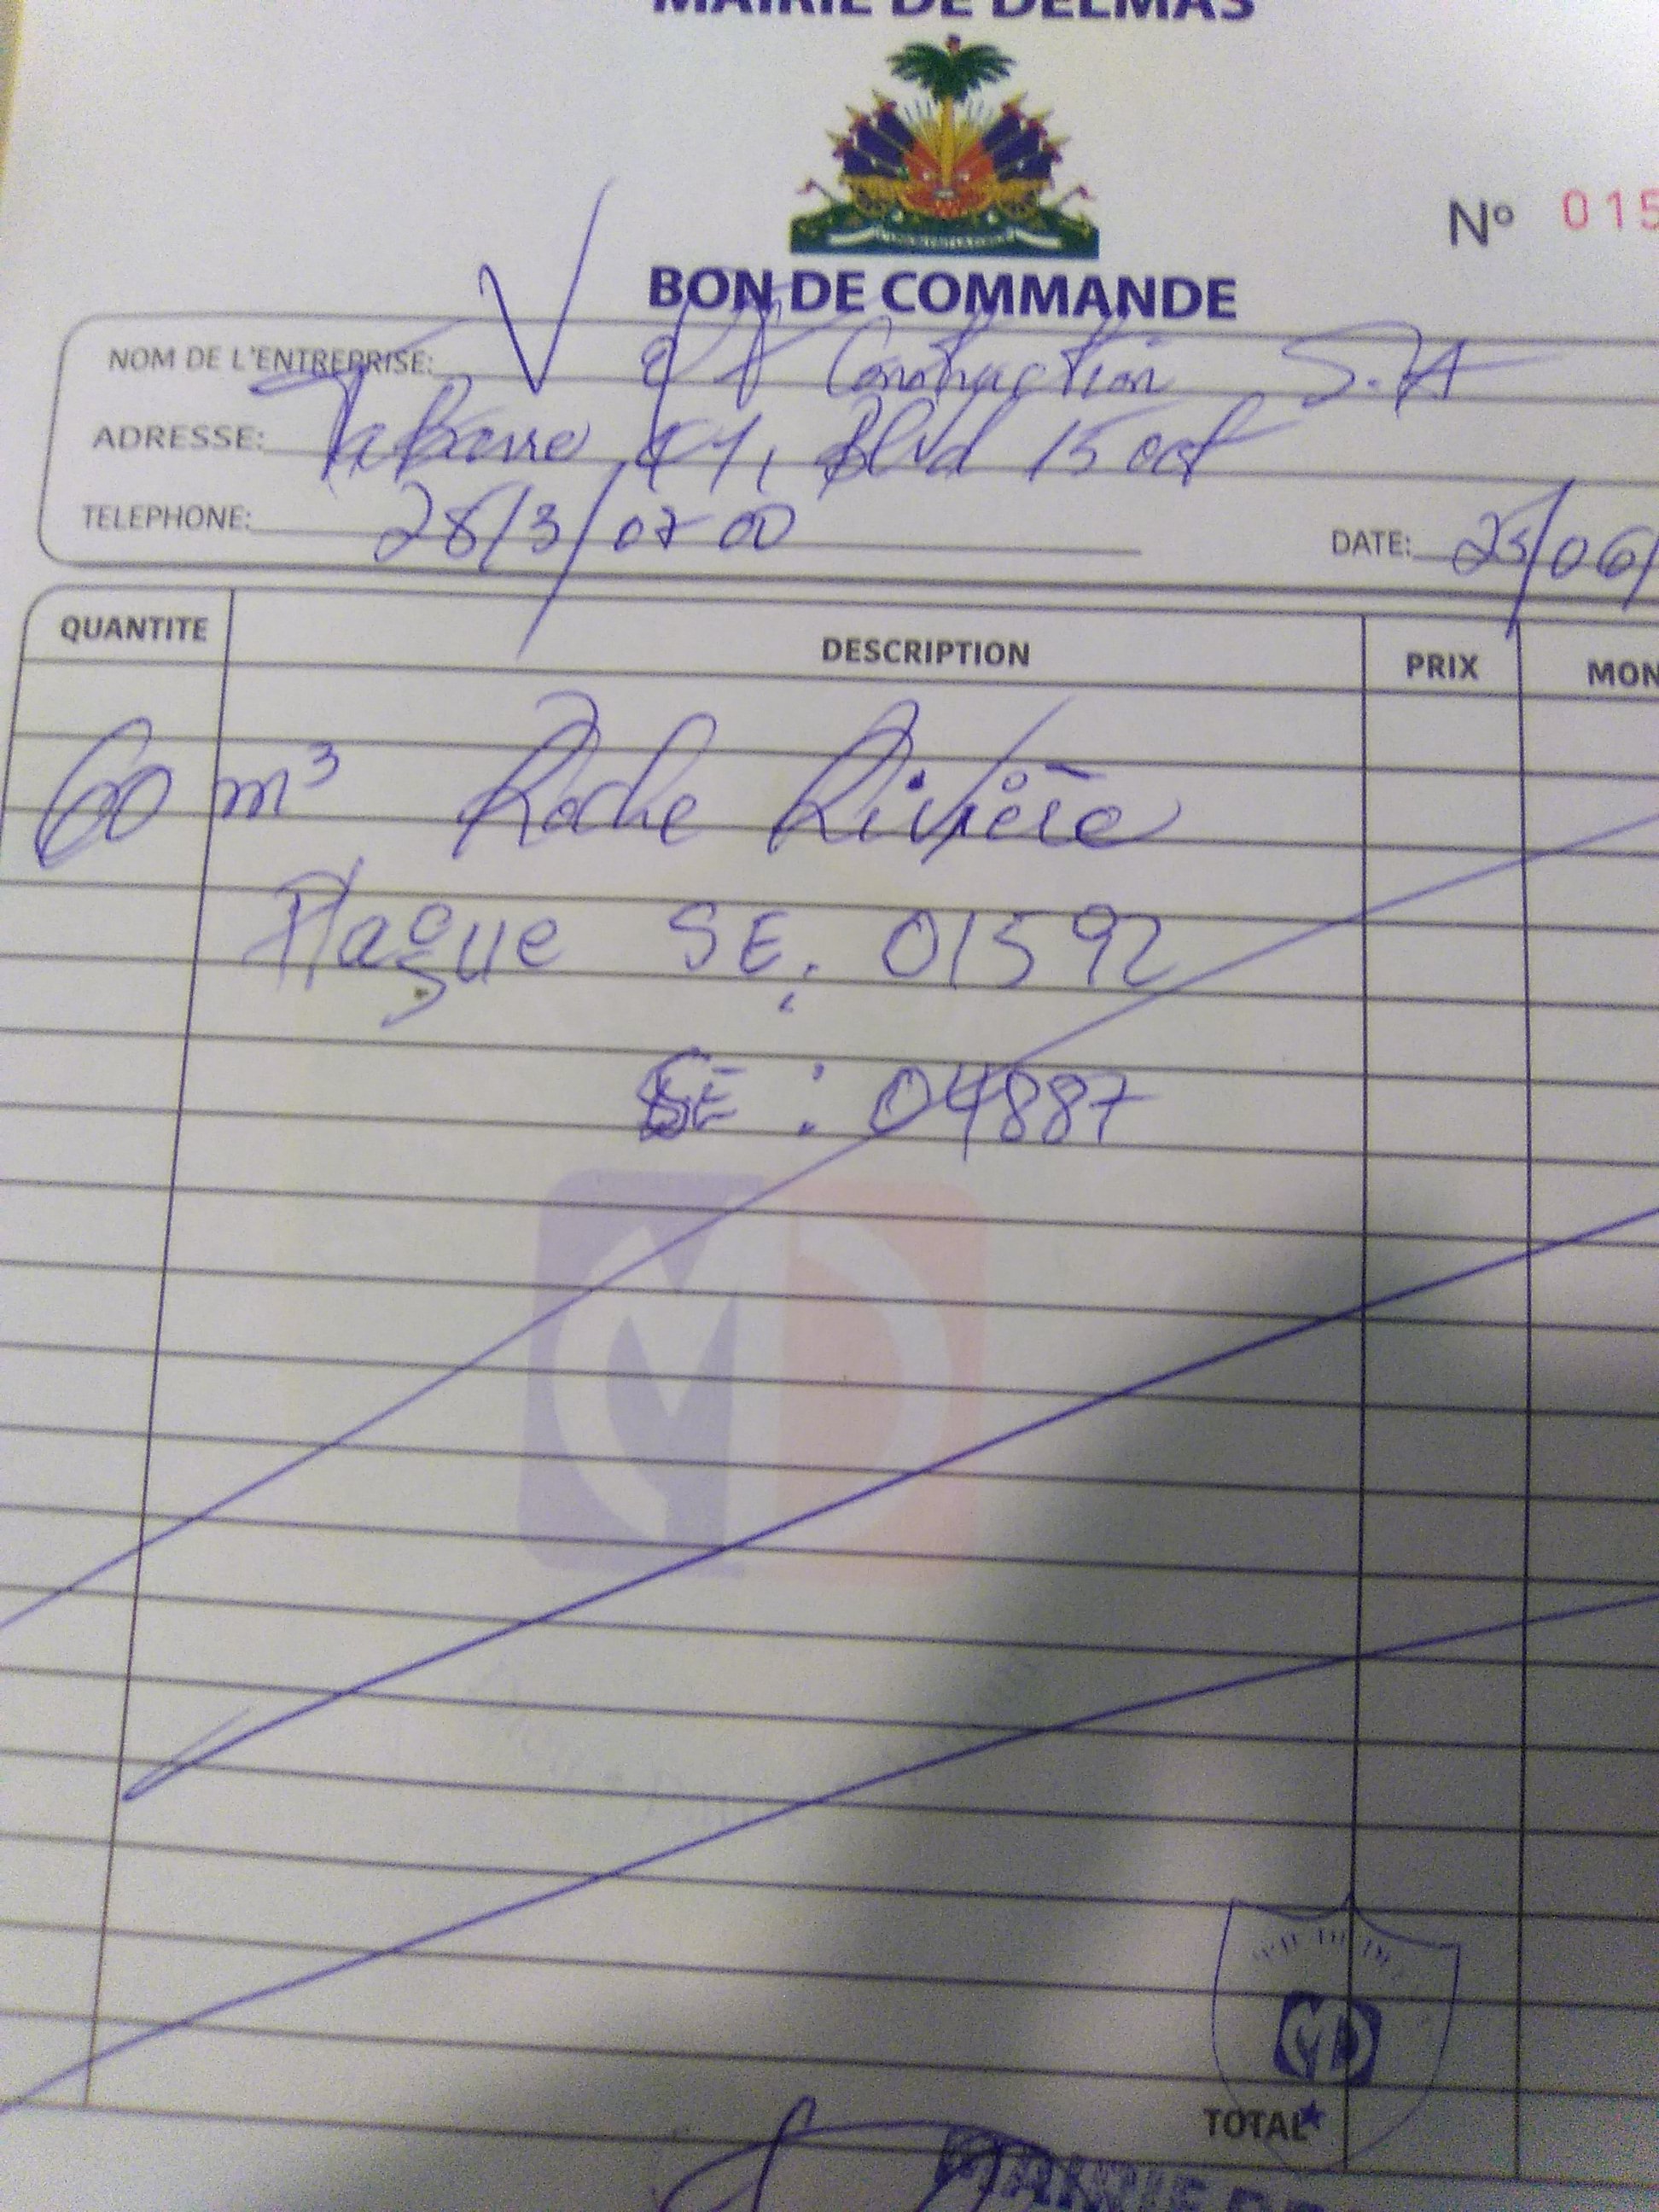 MAIRIE DE DELMAS
Nº 015
BON DE COMMANDE
NOM DE L'ENTREPRISE: V Construction S.A
ADRESSE: Tabarre 41, Blvd 15 oct
TELEPHONE: 28/3/0700
DATE: 25/06/
QUANTITE DESCRIPTION PRIX MON
60 m³ Roche Rivière
Plaque SE: 01592
SE: 04887
TOTAL
MAIRIE DE